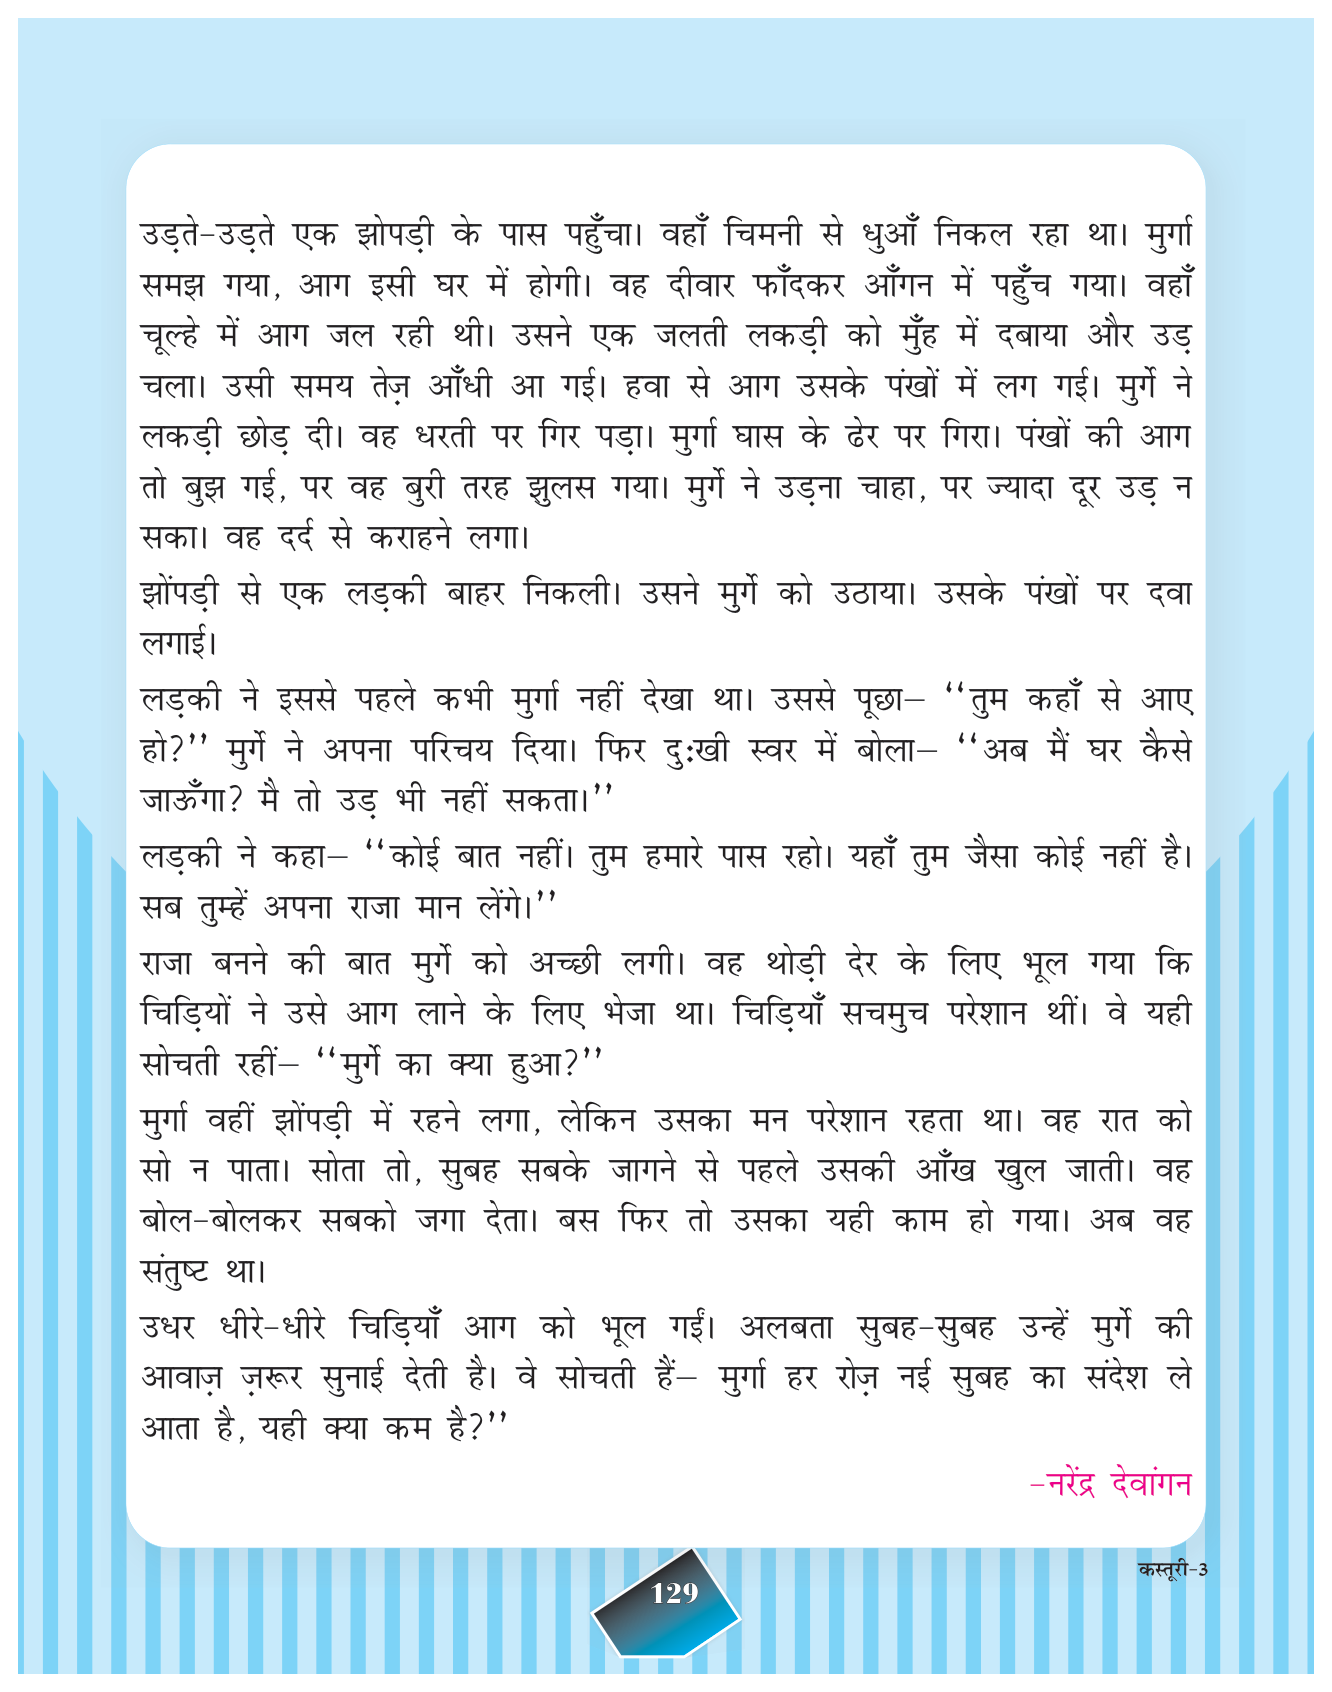 उड़ते-उड़ते एक झोपड़ी के पास पहुँचा। वहाँ चिमनी से धुआँ निकल रहा था। मुर्गा
समझ गया, आग इसी घर में होगी। वह दीवार फाँदकर आँगन में पहुँच गया। वहाँ
चूल्हे में आग जल रही थी। उसने एक जलती लकड़ी को मुँह में दबाया और उड़
चला। उसी समय तेज़ आँधी आ गई। हवा से आग उसके पंखों में लग गई। मुर्गे ने
लकड़ी छोड़ दी। वह धरती पर गिर पड़ा। मुर्गा घास के ढेर पर गिरा। पंखों की आग
तो बुझ गई, पर वह बुरी तरह झुलस गया। मुर्गे ने उड़ना चाहा, पर ज्यादा दूर उड़ न
सका। वह दर्द से कराहने लगा।
झोंपड़ी से एक लड़की बाहर निकली। उसने मुर्गे को उठाया। उसके पंखों पर दवा
लगाई।
लड़की ने इससे पहले कभी मुर्गा नहीं देखा था। उससे पूछा– ‘‘तुम कहाँ से आए
हो?’’ मुर्गे ने अपना परिचय दिया। फिर दुःखी स्वर में बोला– ‘‘अब मैं घर कैसे
जाऊँगा? मै तो उड़ भी नहीं सकता।’’
लड़की ने कहा– ‘‘कोई बात नहीं। तुम हमारे पास रहो। यहाँ तुम जैसा कोई नहीं है।
सब तुम्हें अपना राजा मान लेंगे।’’
राजा बनने की बात मुर्गे को अच्छी लगी। वह थोड़ी देर के लिए भूल गया कि
चिड़ियों ने उसे आग लाने के लिए भेजा था। चिड़ियाँ सचमुच परेशान थीं। वे यही
सोचती रहीं– ‘‘मुर्गे का क्या हुआ?’’
मुर्गा वहीं झोंपड़ी में रहने लगा, लेकिन उसका मन परेशान रहता था। वह रात को
सो न पाता। सोता तो, सुबह सबके जागने से पहले उसकी आँख खुल जाती। वह
बोल-बोलकर सबको जगा देता। बस फिर तो उसका यही काम हो गया। अब वह
संतुष्ट था।
उधर धीरे-धीरे चिड़ियाँ आग को भूल गईं। अलबता सुबह-सुबह उन्हें मुर्गे की
आवाज़ ज़रूर सुनाई देती है। वे सोचती हैं– मुर्गा हर रोज़ नई सुबह का संदेश ले
आता है, यही क्या कम है?’’
-नरेंद्र देवांगन
कस्तूरी-3
129